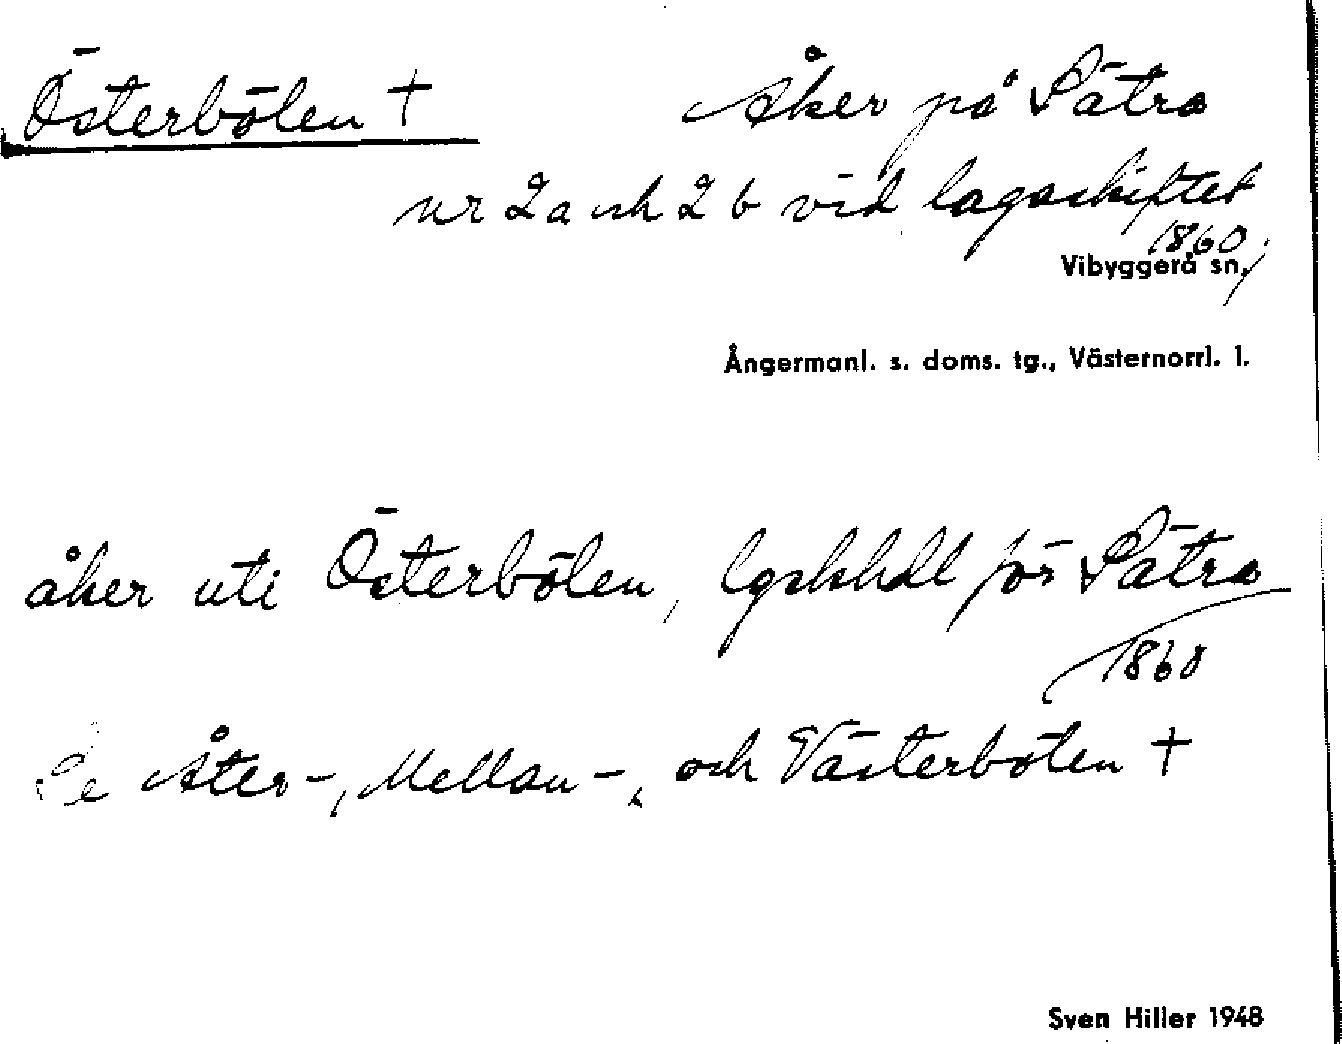 Österbölen +
Åker på Sätra
nr 2a och 2 b vid lagaskiftet
1860,
Vibyggerå sn,
Ångermanl. s. doms. tg., Västernorrl. l.
åker uti Österbölen, lgskhdl för Sätra
1860
Se Åter-, Mellan-, och Västerbölen +
Sven Hiller 1948